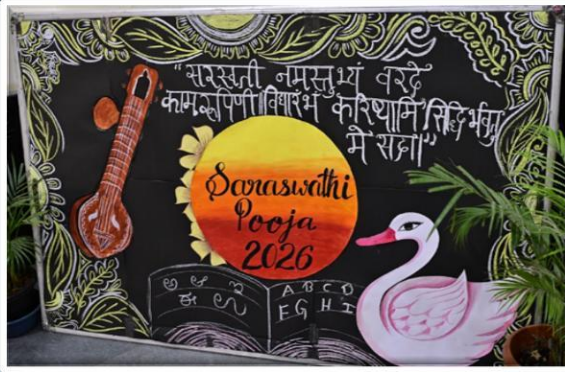 "सरस्वती नमस्तुभ्यं वरदे
कामरूपिणी।विद्यारंभं करिष्यामि सिद्धिर्भवतु
मे सदा।"
Saraswathi
Pooja
2026
అ ఆ ఇ
A B C D
G H I